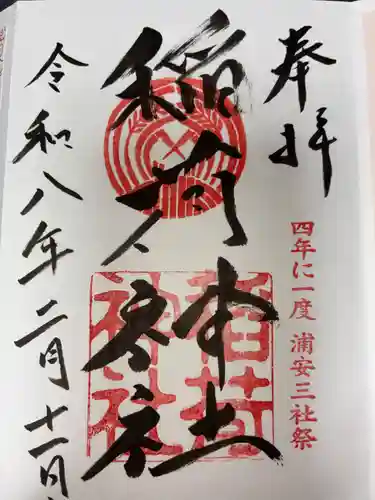 奉拝
四年に一度 浦安三社祭
稲荷
稲荷神社
令和八年二月十一日